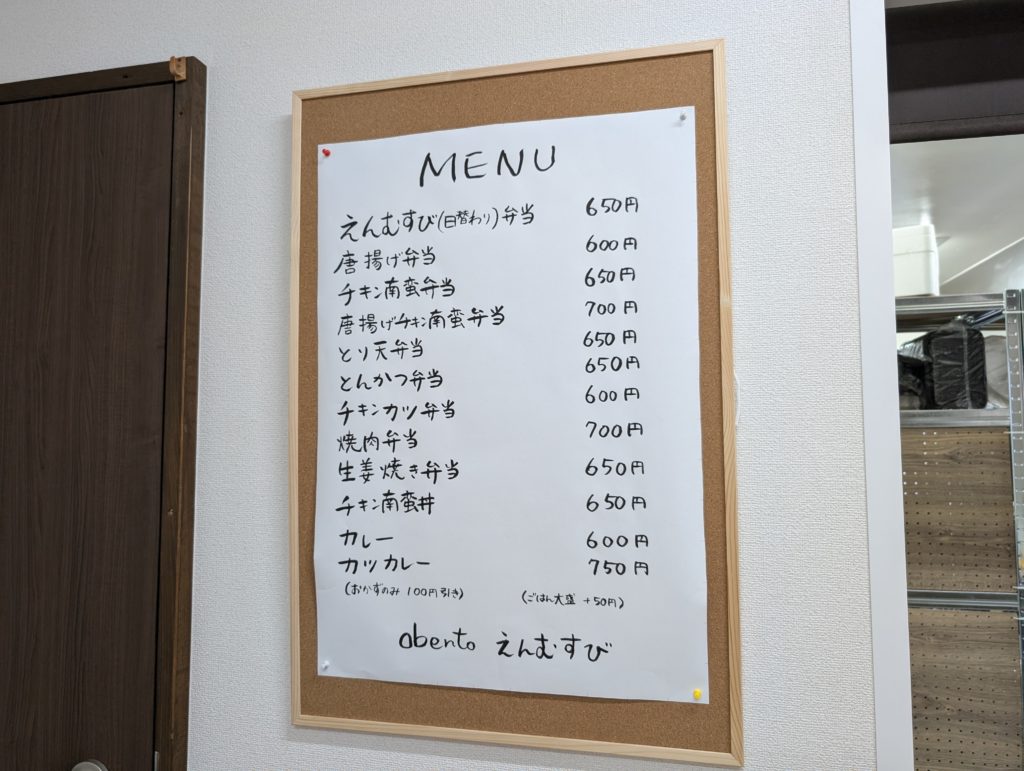 MENU
えんむすび(日替わり)弁当 650円
唐揚げ弁当 600円
チキン南蛮弁当 650円
唐揚げチキン南蛮弁当 700円
とり天弁当 650円
とんかつ弁当 650円
チキンカツ弁当 600円
焼肉弁当 700円
生姜焼き弁当 650円
チキン南蛮丼 650円
カレー 600円
カツカレー 750円
(おかずのみ 100円引き) (ごはん大盛 +50円)
obento えんむすび